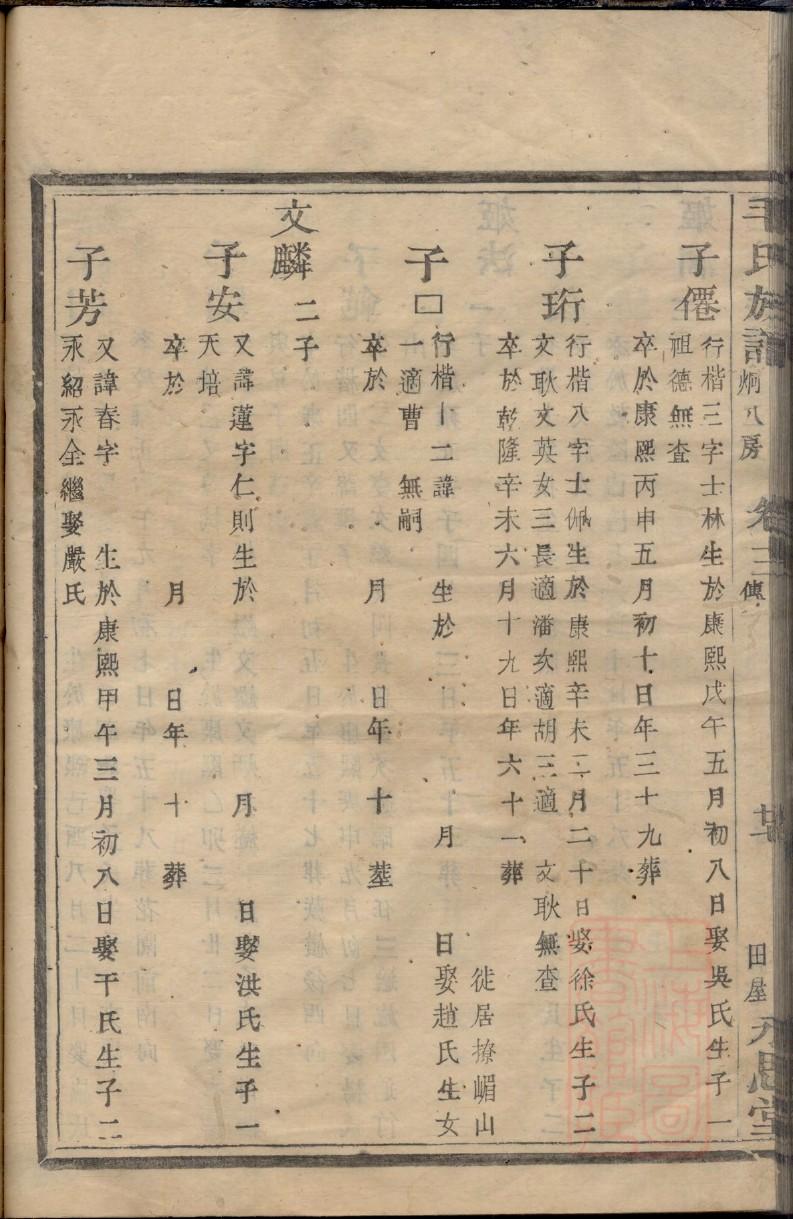 毛氏族譜 炯八房 卷三 傳 廿 田屋 永思堂
子僊 行楷三字士林生於康熙戊午五月初八日娶吳氏生子一
祖德無査
卒於康熙丙申五月初十日年三十九葬
子珩 行楷八字士佩生於康熙辛未二月二十日娶徐氏生子二
文耿文英女三長適潘次適胡三適 文耿無査
卒於乾隆辛未六月十九日年六十一葬
徙居撩嵋山
子口 行楷十二諱 生於 月 日娶趙氏生女
一適曹 無嗣
卒於 月 日年 十 塟
文麟二子
子安 又諱蓮字仁則生於 月 日娶洪氏生子一
天培
卒於 月 日年 十 葬
子芳 又諱春字 生於康熙甲午三月初八日娶干氏生子二
永紹永全繼娶嚴氏